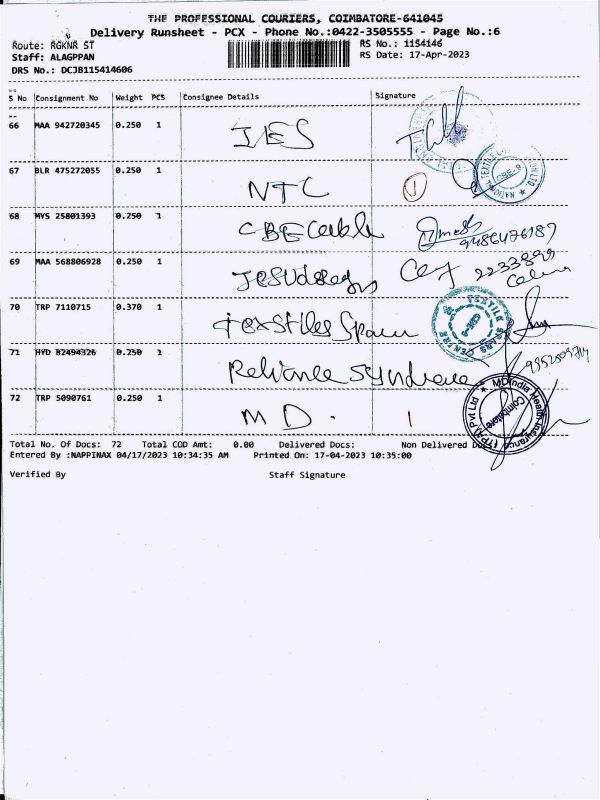 THE PROFESSIONAL COURIERS, COIMBATORE-641045
Delivery Runsheet - PCX - Phone No.:0422-3505555 - Page No.:6
Route: RGKNR ST
RS No.: 1154146
Staff: ALAGPPAN
RS Date: 17-Apr-2023
DRS No.: DCJB115414606
S No Consignment No Weight PCS Consignee Details Signature
66 MAA 942720345 0.250 1 IES
67 BLR 475272055 0.250 1 NTC 1
68 MYS 25801393 0.250 1 CBE 9486476187
69 MAA 568806928 0.250 1 2233899
70 TRP 7110715 0.370 1 Textiles
71 HYD 82494326 0.250 1 Reliance
72 TRP 5090761 0.250 1 M D . 1
MDIndia Health Insurance (TPA) Pvt Ltd
Coimbatore
Total No. Of Docs: 72 Total COD Amt: 0.00 Delivered Docs: Non Delivered
Entered By :NAPPINAX 04/17/2023 10:34:35 AM Printed On: 17-04-2023 10:35:00
Verified By Staff Signature